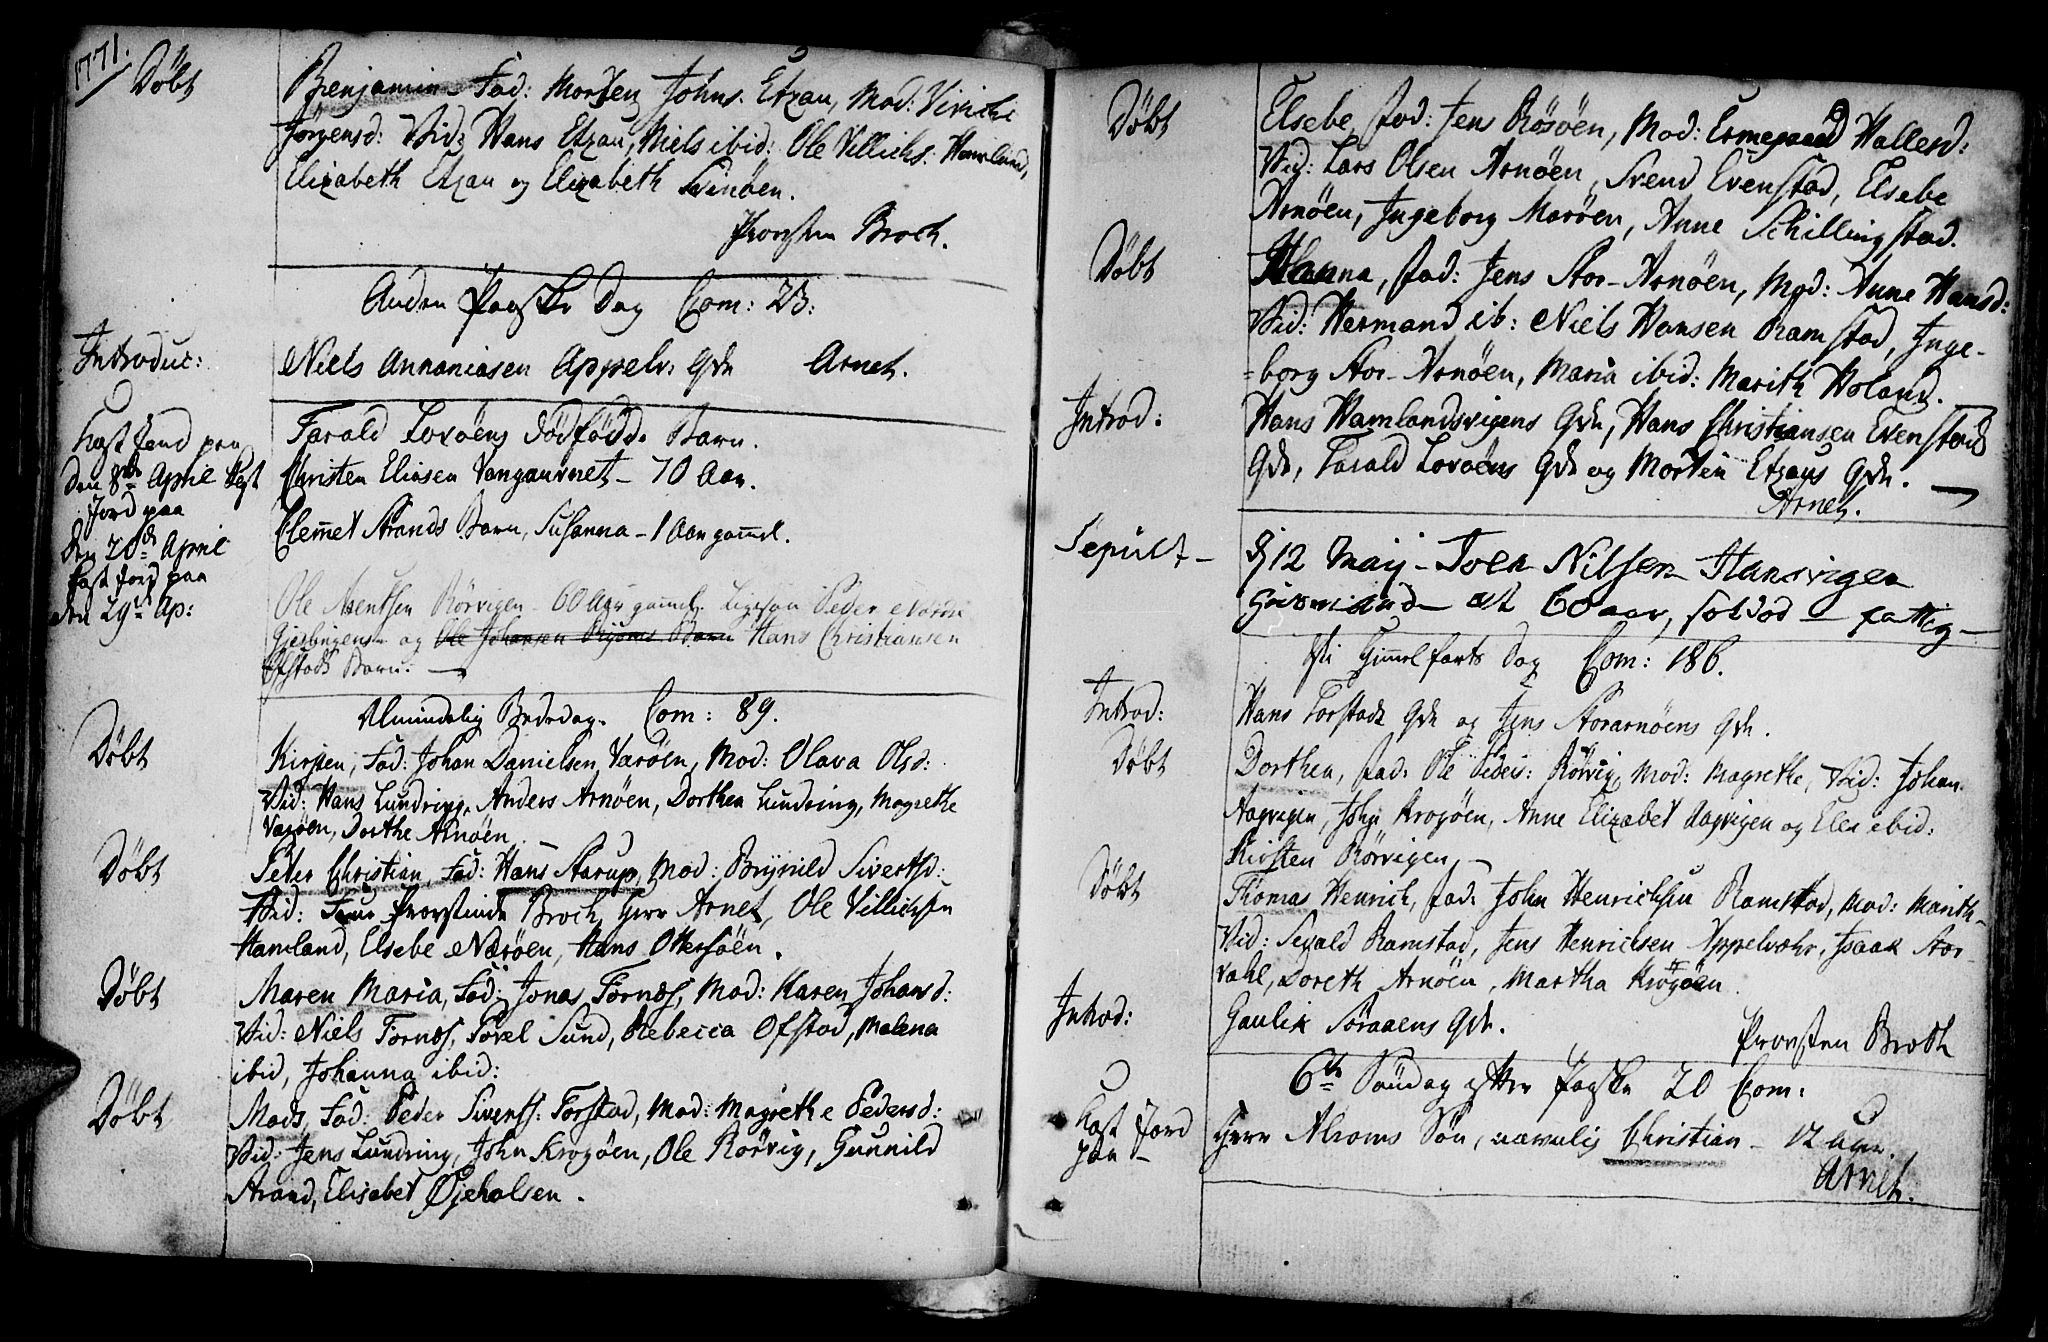 1771.
Döbt
Benjamin Fad: Morten Johns. Etzau, Mod: Virichi
Jörgensd: Vid: Hans Etzau, Niels ibid: Ole Villichs: Hamland,
Elizabeth Etzau og Elizabeth Svinöen.
Provsten Broch.
Anden Paaske Dag Com: 23:
Introduc:
Niels Annaniasen Appelv: Qde Arnet.
Kast Jord paa
den 8de April
Jord paa
den 20de April
kast Jord paa
den 29de Ap:
Tarald Lovöens dödfödde Barn.
Christen Eliasen Vangaurnet - 70 Aar.
Clemet Strands Barn, Susanna - 1 Aar gamel.
Ole Arentsen Rörvigen - 60 Aar gamel. Ligesom Peder
Gieslingens og Ole Johansen Barn Hans Christiansen
Ofstads Barn.
Almindelig Bededag. Com: 89.
Döbt
Kirsten, Fad: Johan Danielsen Varöen, Mod: Olava Olsd:
Vid: Hans Lundring, Anders Arnöen, Dorthea Lundring, Magrethe
Varöen, Dorthe Arnöen
Döbt
Peter Christian, Fad: Hans Starup, Mod: Brynild Sivertsd:
Vid: Frue Provstinde Broch, Herr Arnet, Ole Villichsen
Hamland, Elsebe Naröen, Hans Ottersöen.
Döbt
Maren Maria, Fad: Jonas Fornæs, Mod: Karen Johansd:
Vid: Niels Fornæs, Povel Sund, Rebecca Ofstad, Malena
ibid, Johanna ibid:
Döbt
Mads, Fad: Peder Siverts: Forstad, Mod: Magrethe Pedersd:
Vid: Jens Lundring, John Krogöen, Ole Rörvig, Gunnild
Strand, Elisabet Øjeholsen.
Döbt
Elsebe, Fad: Jens Rösöen, Mod: Ermegaard Hallesd:
Vid: Lars Olsen Arnöen, Svend Evenstad, Elsebe
Arnöen, Ingeborg Maröen, Anne Schillingstad.
Döbt
Hanna, Fad: Jens Stor-Arnöen, Mod: Anne Hansd:
Vid: Hermand ib: Niels Hansen Ramstad, Inge-
=borg Stor-Arnöen, Maria ibid: Marith Holand.
Introd:
Hans Hamlandsvigens Qde, Hans Christiansen Evenstads
Qde, Tarald Lovöens Qde og Morten Etzaus Qde.
Arnet.
Sepult -
d 12 Maij - Joen Nilsen Hansvigen
æt 60 aar, fattig
Paa Himmelfarts Dag Com: 186.
Introd:
Hans Forstads Qde og Jens Storarnöens Qde.
Döbt
Dorthea, Fad: Ole Peders: Rörvig, Mod: Magrethe, Vid: Johan
Aagvigen, John Krogöen, Anne Elizabet Aagvigen og Elen ibid:
Kirsten Rörvigen -
Döbt
Thomas Henrich, Fad: John Henrichsen Ramstad, Mod: Marith -
Vid: Sezald Ramstad, Jens Henrichsen Appelvæhr, Isaak Stor-
vahl, Doreth Arnöen, Martha Krogöen.
Introd:
Gaulik Soraaens Qde.
Provsten Broch
6te Söndag efter Paaske 20 Com:
Kast Jord
paa -
Herr Alroms Sön, navnlig Christian - 12 uger.
Arnet.